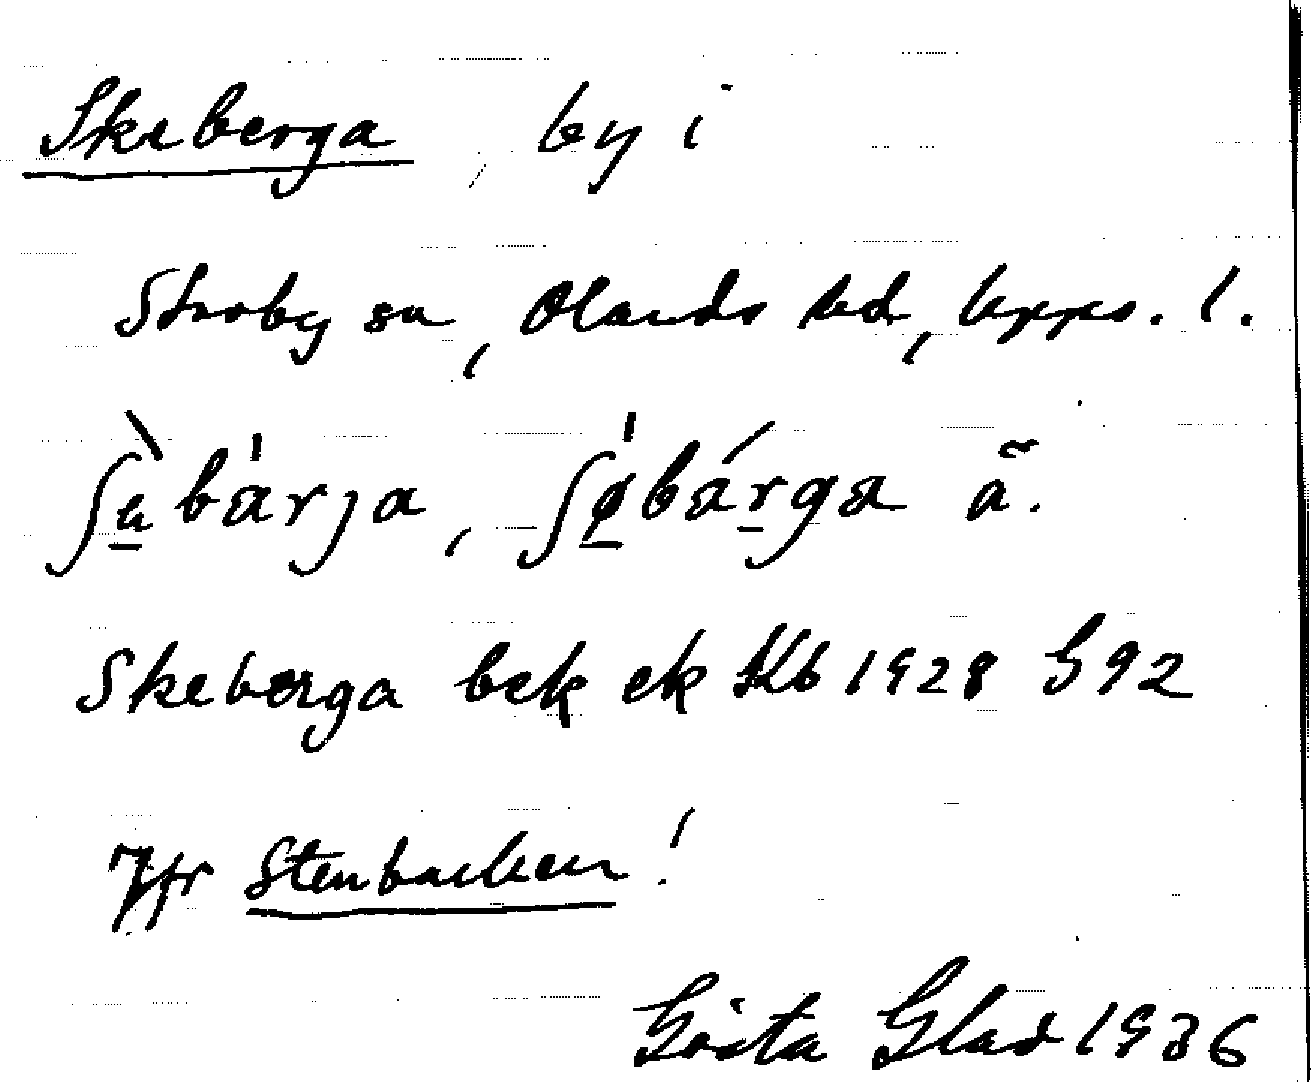 Skeberga, by i
Skoby sn, Olands hd, Upps. l.
ʃu̠̇̀bàrja, ʃø̠bár̠ga ã.
Skeberga bek ek Kb 1928 G92
Jfr Stenbacken!
Gösta Glad 1936